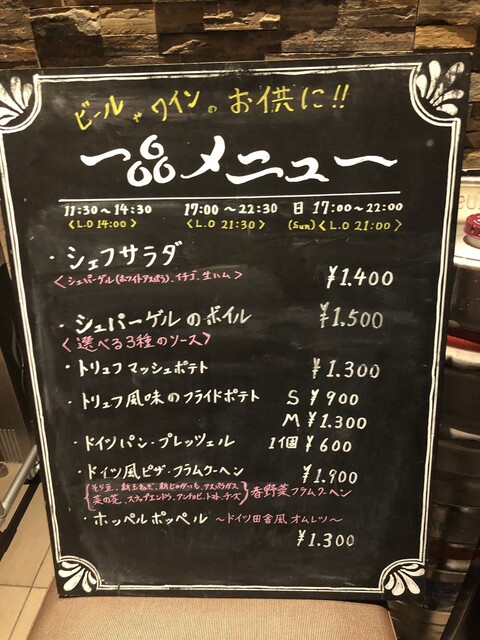 ビールやワインのお供に!!
一品メニュー
11:30～14:30 17:00～22:30 日 17:00～22:00
<L.O 14:00> <L.O 21:30> (Sun) <L.O 21:00>
・シェフサラダ
<シュパーゲル(ホワイトアスパラ)、イチゴ、生ハム> ¥1.400
・シュパーゲルのボイル ¥1.500
<選べる3種のソース>
・トリュフマッシュポテト ¥1.300
・トリュフ風味のフライドポテト S ¥900
M ¥1.300
・ドイツパン・プレッツェル 1個 ¥600
・ドイツ風ピザ・フラムクーヘン ¥1.900
そら豆、新玉ねぎ、新じゃがいも、アスパラガス
菜の花、スナップエンドウ、アンチョビ、トマト、チーズ 春野菜フラムクーヘン
・ホッペルポッペル ～ドイツ田舎風オムレツ～
¥1.300